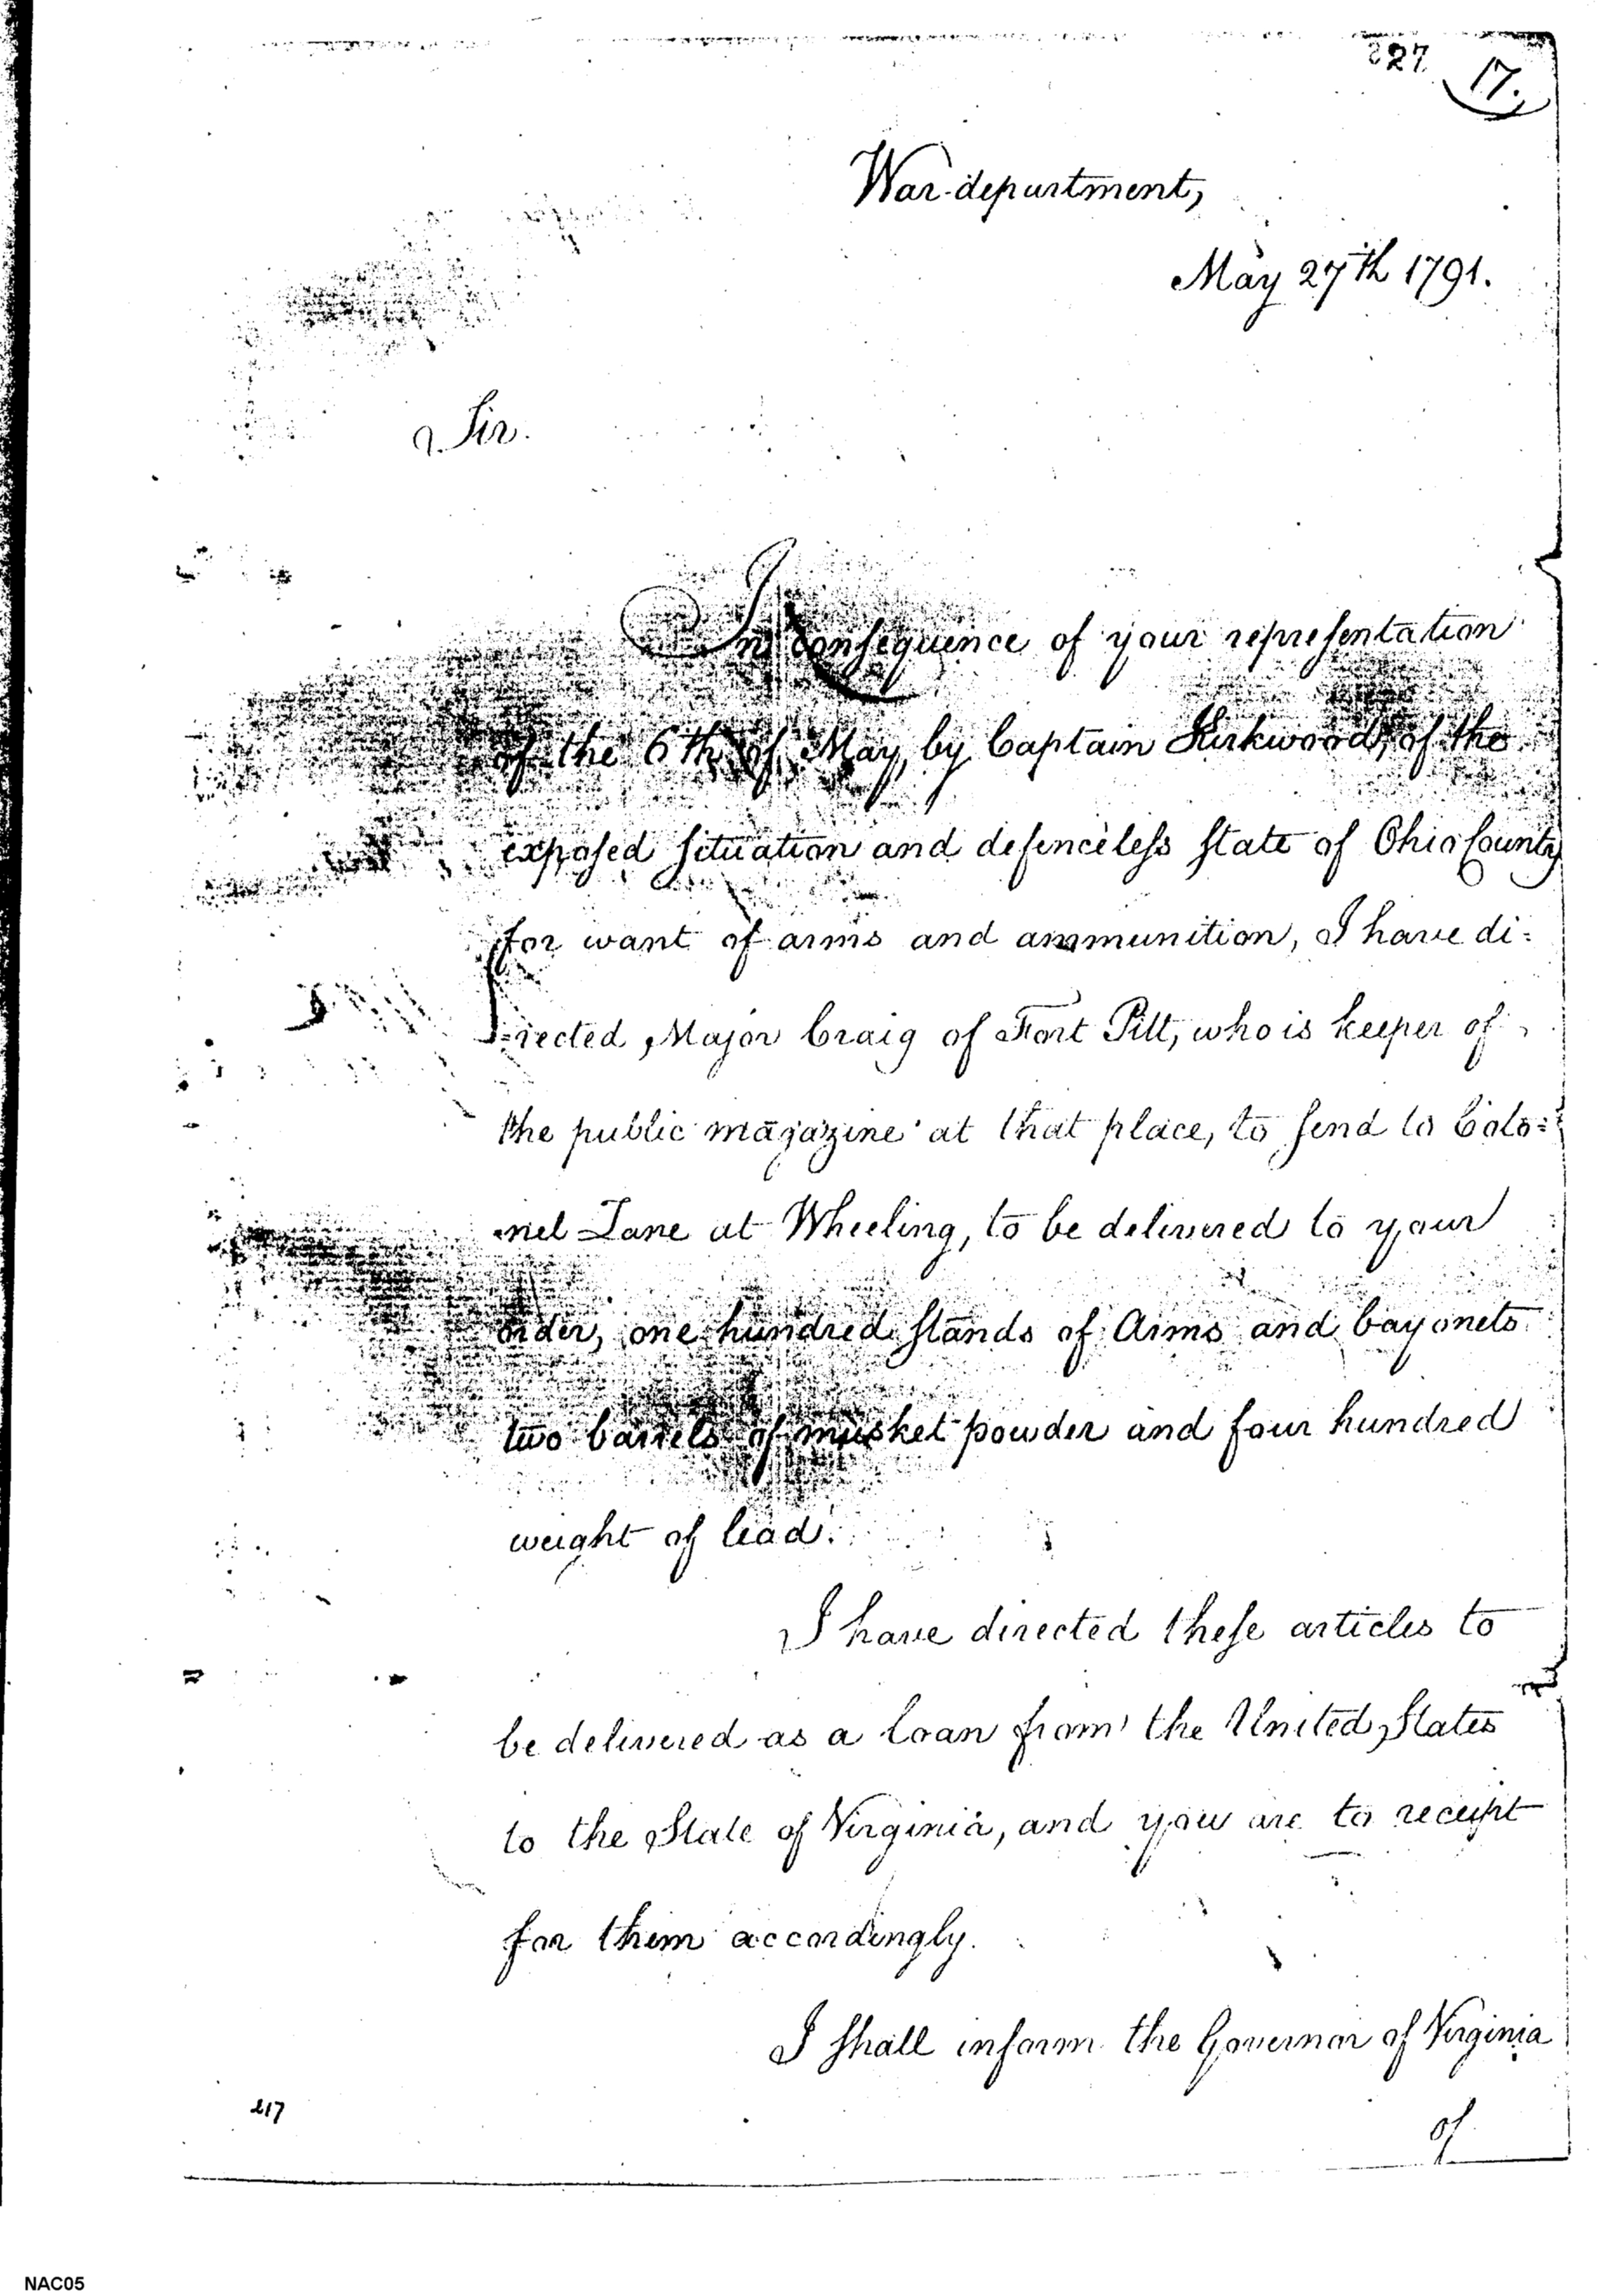 227
17.
War department,
May 27th 1791.
Sir.
In consequence of your representation
of the 6th of May, by Captain Kirkwood, of the
exposed situation and defenceless state of Ohio County
for want of arms and ammunition, I have di=
=rected Major Craig of Fort Pitt, who is keeper of
the public magazine at that place, to send to Colo=
nel Zane at Wheeling, to be delivered to your
order, one hundred stands of Arms and bayonets
two barrels of musket powder and four hundred
weight of lead.
I have directed these articles to
be delivered as a loan from the United States
to the State of Virginia, and you are to receipt
for them accordingly.
I shall inform the Governor of Virginia
of
217
NAC05